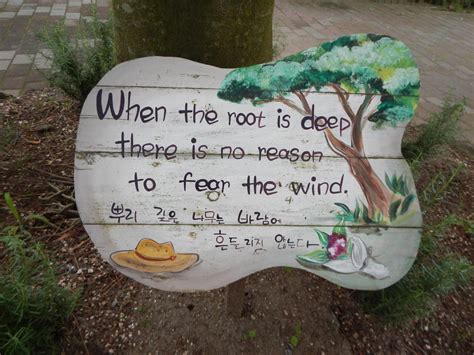 When the root is deep
there is no reason
to fear the wind.
뿌리 깊은 나무는 바람에
흔들리지 않는다